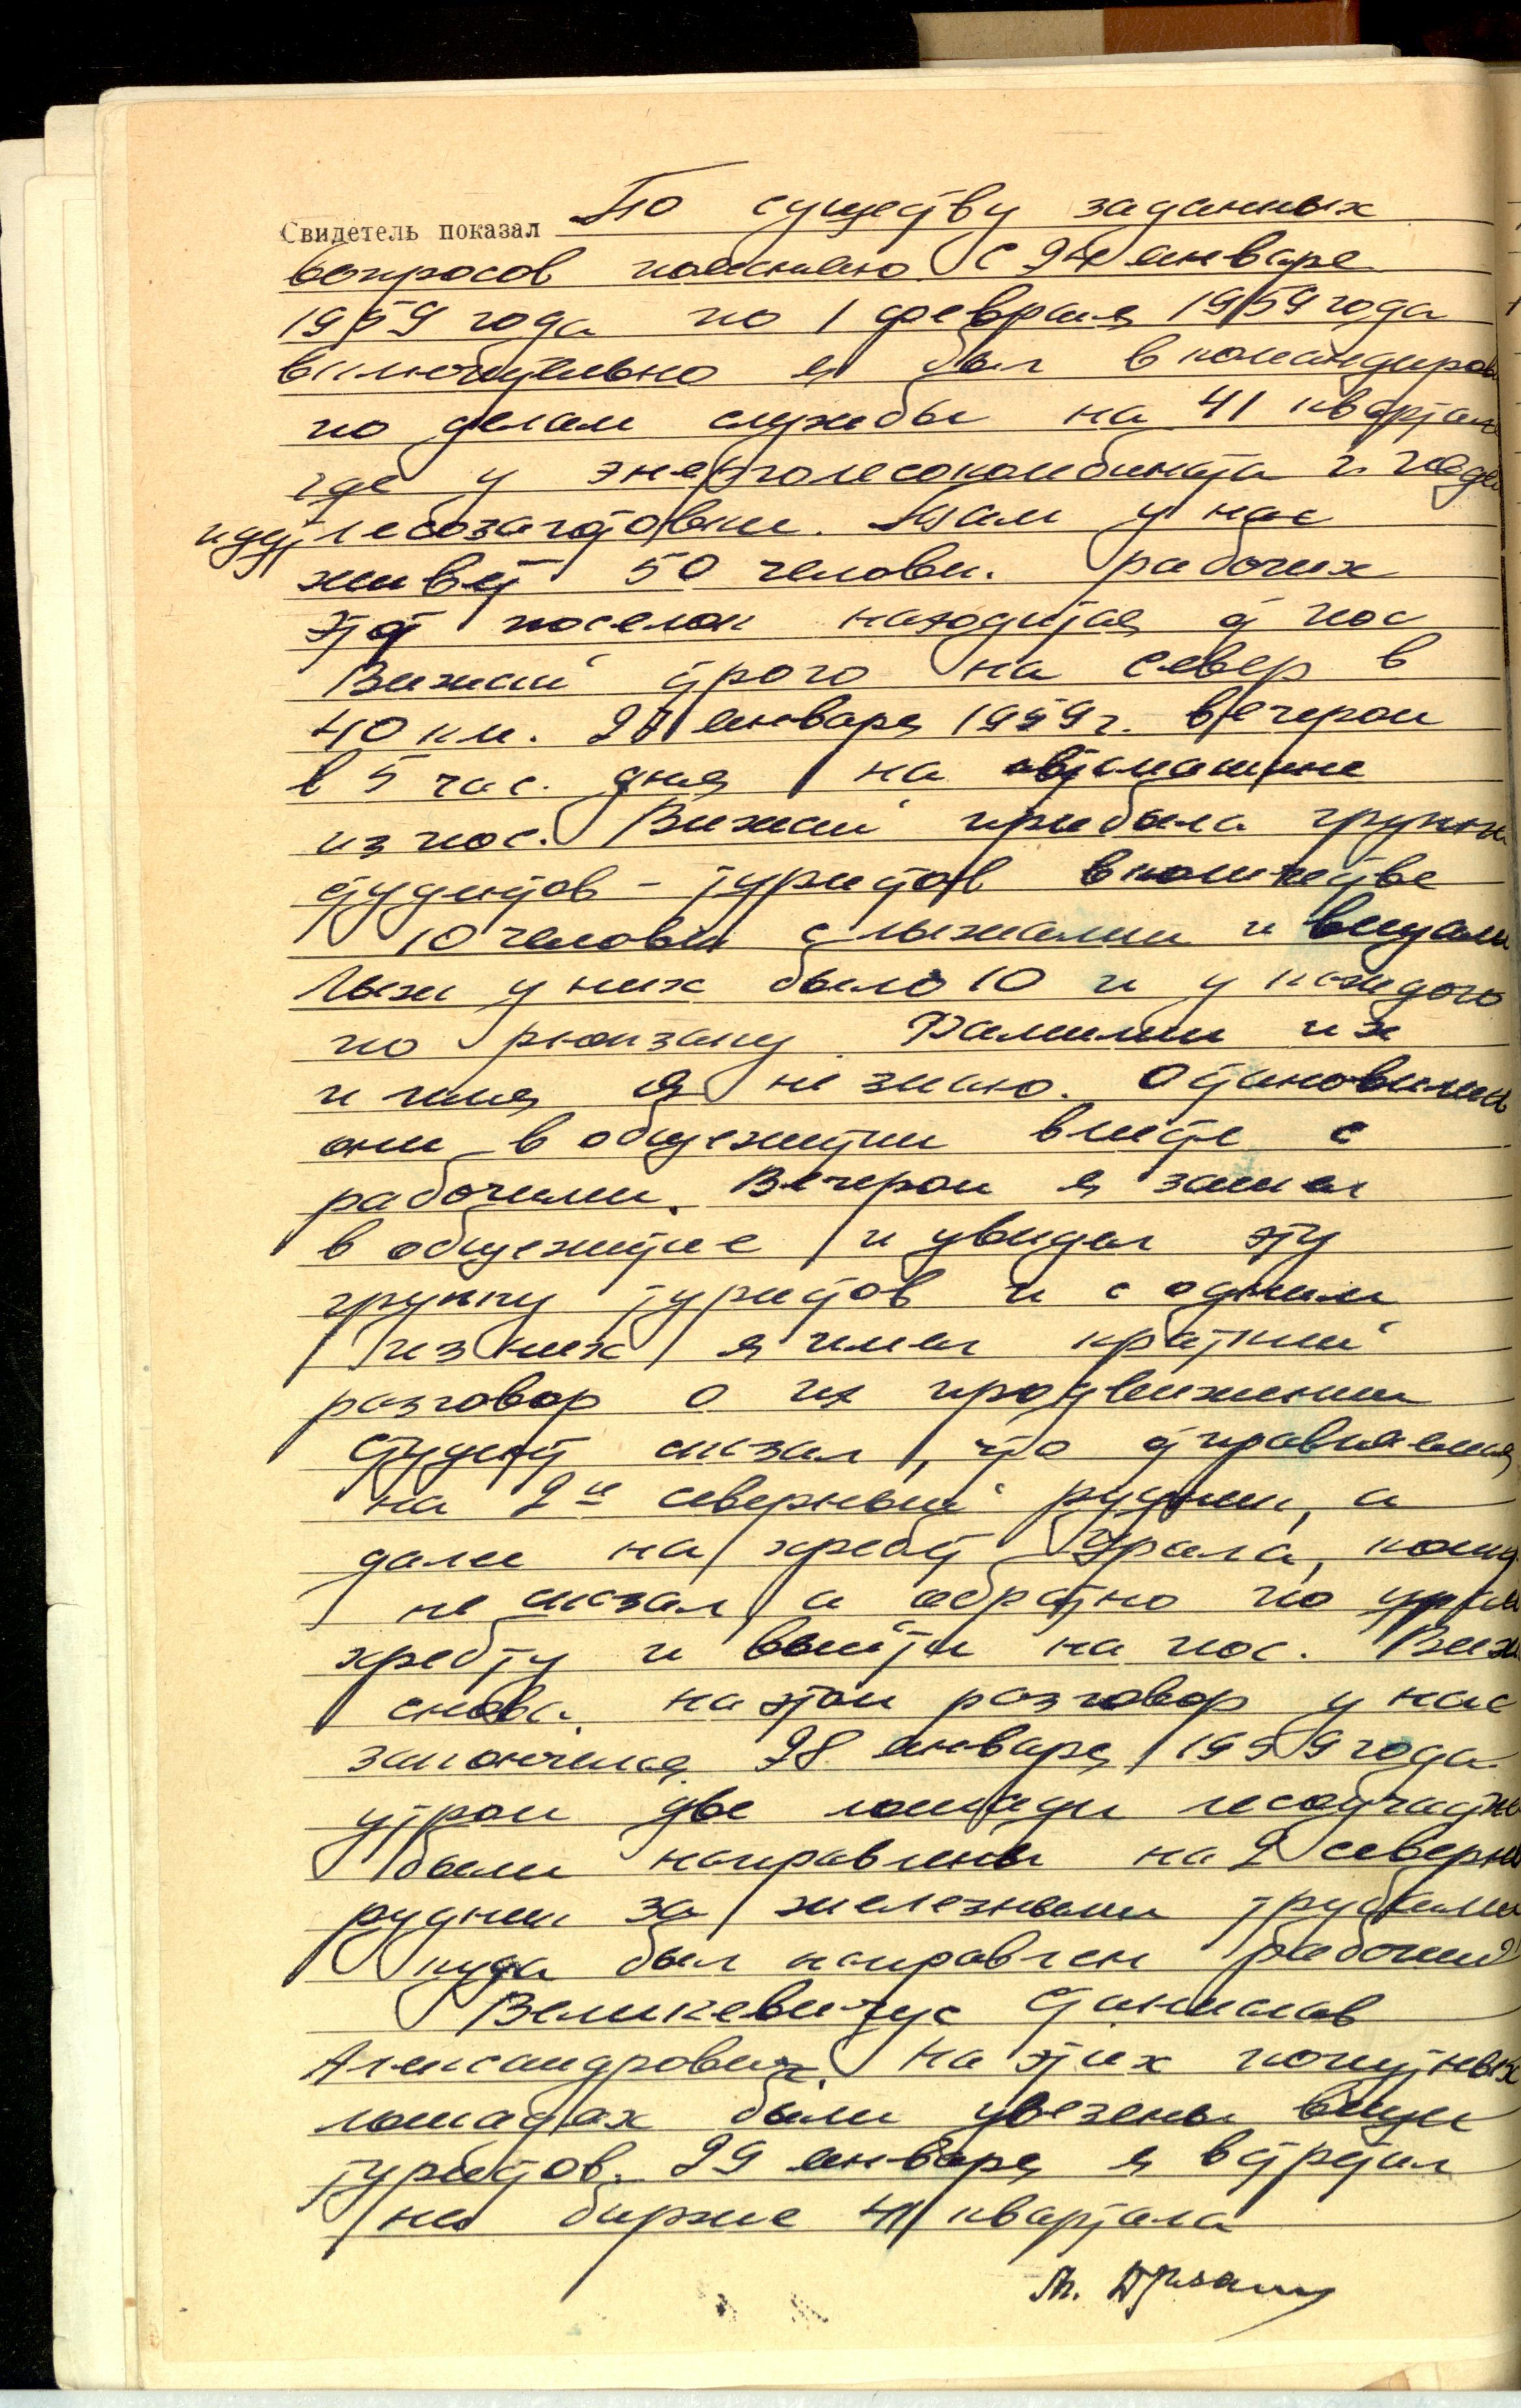 Свидетель показал По существу заданных
вопросов поясняю. С 24 январе
1959 года по 1 февраля 1959 года
включительно я был в командиров
по делам службы на 41 квартал
где у энерголесокомбината
идут лесозаготовки. Там у нас
живет 50 человек. рабочих
Этот поселок находится от пос
Вижай строго на север в
40 км. 27 января 1959 г. вечером
в 5 час. дня на автомашине
из пос. Вижай прибыла группа
студентов - туристов в количестве
10 человек с лыжами и вещами
Лыж у них было 10 и у каждого
по рюкзаку. Фамилии их
и имя я не знаю. Остановились
они в общежитии вместе с
рабочими. Вечером я зашел
в общежитие и увидел эту
группу туристов и с одним
из них я имел краткий
разговор о их продвижении
Студент сказал, что отправляемся
на 2й северный рудник, а
далее на хребет Урала,
не сказал а обратно по
хребту и выйти на пос. Виж
снова. на этом разговор у нас
закончился. 28 января 1959 года
утром две лошади лесоучастк
были направлены на 2 северны
рудник за железными трубами
куда был направлен рабочий
Великевичус Станислав
Александрович. На этих попутных
лошадях были увезены вещи
туристов. 29 января я встретил
на бирже 41 квартала